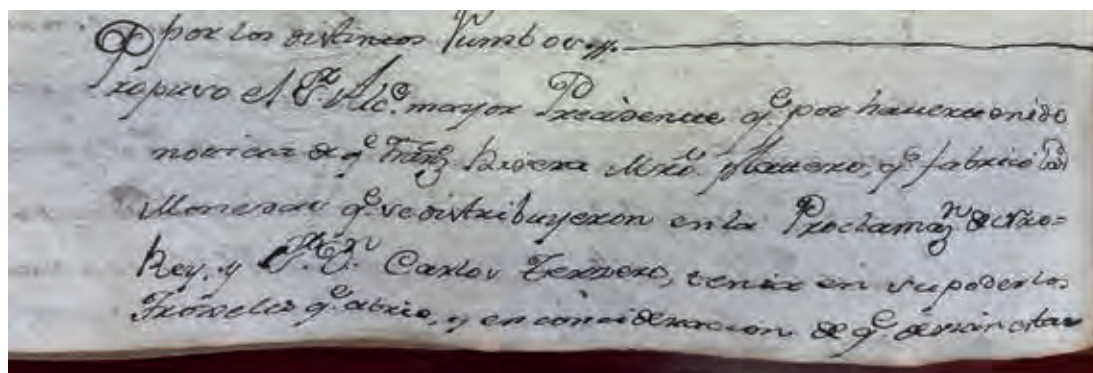 por los distintos rumbos.
Propuso el Sr. Alce. mayor Presidente qe. por haver tenido
noticia de qe. Franco. Rivera Mro. Platero, qe. fabricó las
Monedas qe. se distribuyeron en la Proclamazn. de nro.
Rey, y Sr. Dn. Carlos Tercero, tenia en su poder los
Troqueles qe. abrió, y en consideracion de qe. devian estar